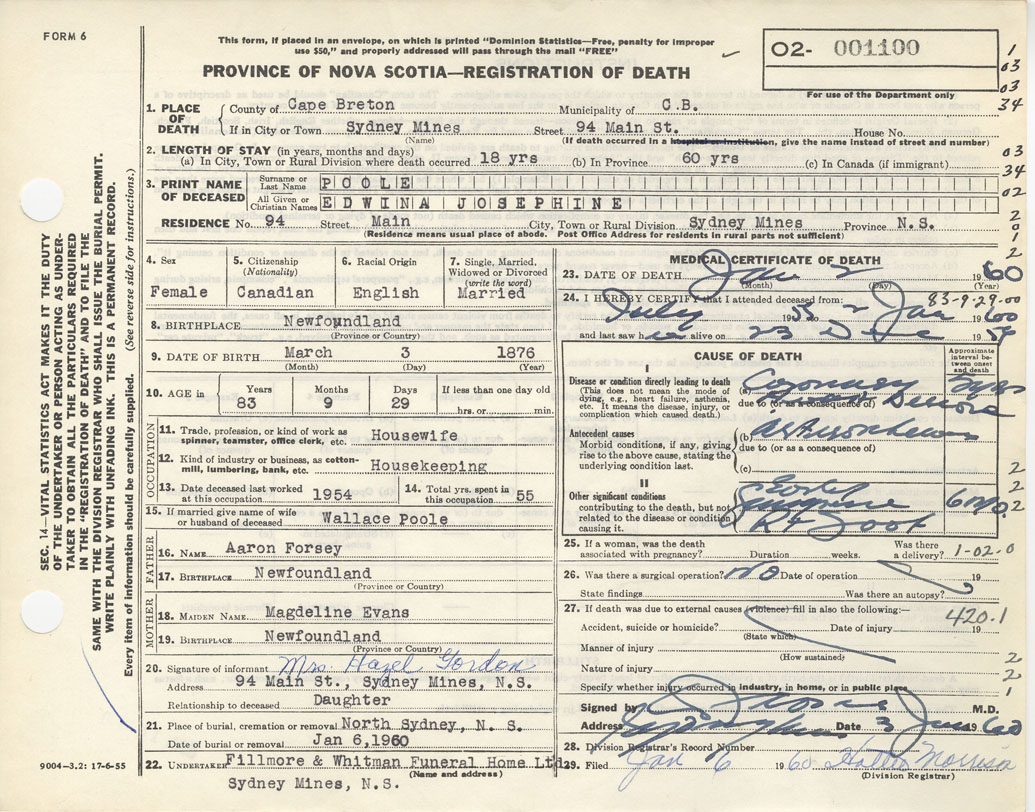 FORM 6
This form, if placed in an envelope, on which is printed "Dominion Statistics—Free, penalty for improper
use $50," and properly addressed will pass through the mail "FREE"
O2- 001100
For use of the Department only
PROVINCE OF NOVA SCOTIA—REGISTRATION OF DEATH
1
03
03
34
03
34
02
2
0
1
2
1. PLACE OF DEATH
County of Cape Breton Municipality of C.B.
If in City or Town Sydney Mines Street 94 Main St. House No.
(Name) (If death occurred in a hospital or institution, give the name instead of street and number)
2. LENGTH OF STAY (in years, months and days)
(a) In City, Town or Rural Division where death occurred 18 yrs (b) In Province 60 yrs (c) In Canada (if immigrant)
3. PRINT NAME OF DECEASED
Surname or Last Name POOLE
All Given or Christian Names EDWINA JOSEPHINE
RESIDENCE No. 94 Street Main City, Town or Rural Division Sydney Mines Province N.S.
(Residence means usual place of abode. Post Office Address for residents in rural parts not sufficient)
4. Sex
Female
5. Citizenship
(Nationality)
Canadian
6. Racial Origin
English
7. Single, Married,
Widowed or Divorced
(write the word)
Married
8. BIRTHPLACE Newfoundland
(Province or Country)
9. DATE OF BIRTH March 3 1876
(Month) (Day) (Year)
10. AGE in
Years Months Days If less than one day old
83 9 29 hrs. or min.
OCCUPATION
11. Trade, profession or kind of work as
spinner, teamster, office clerk, etc. Housewife
12. Kind of industry or business, as cotton-
mill, lumbering, bank, etc. Housekeeping
13. Date deceased last worked
at this occupation 1954
14. Total yrs. spent in
this occupation 55
15. If married give name of wife
or husband of deceased Wallace Poole
FATHER
16. NAME Aaron Forsey
17. BIRTHPLACE Newfoundland
(Province or Country)
MOTHER
18. MAIDEN NAME Magdeline Evans
19. BIRTHPLACE Newfoundland
(Province or Country)
20. Signature of informant Mrs. Hazel Gordon
Address 94 Main St., Sydney Mines, N.S.
Relationship to deceased Daughter
21. Place of burial, cremation or removal North Sydney, N. S.
Date of burial or removal Jan 6,1960
22. UNDERTAKER Fillmore & Whitman Funeral Home Ltd
(Name and address)
Sydney Mines, N.S.
MEDICAL CERTIFICATE OF DEATH
23. DATE OF DEATH Jan 2 1960
(Month) (Day) (Year)
24. I HEREBY CERTIFY that I attended deceased from: 83-9-29-00
July 1955 2 Jan 1960
and last saw h alive on 23 Dec 19
CAUSE OF DEATH
Approximate
interval be-
tween onset
and death
I
Disease or condition directly leading to death
(This does not mean the mode of
dying, e.g., heart failure, asthenia,
etc. It means the disease, injury, or
complication which caused death.)
(a) Coronary
due to (or as a consequence of)
Antecedent causes
Morbid conditions, if any, giving
rise to the above cause, stating the
underlying condition last.
(b)
due to (or as a consequence of)
(c)
II
Other significant conditions
contributing to the death, but not
related to the disease or condition
causing it.
Gangrene
Rt Foot
6 mo.
25. If a woman, was the death
associated with pregnancy? Duration weeks. Was there
a delivery? 1-02-0
26. Was there a surgical operation? No Date of operation 19
State findings Was there an autopsy?
27. If death was due to external causes (violence) fill in also the following:—
420.1
Accident, suicide or homicide? Date of injury 19
(State which)
Manner of injury
(How sustained)
Nature of injury
Specify whether injury occurred in industry, in home, or in public place
Signed by M.D.
Address Date 3 Jan 1960
28. Division Registrar's Record Number
29. Filed Jan 6 1960 Morrison
(Division Registrar)
2
2
2
2
2
1
SEC. 14—VITAL STATISTICS ACT MAKES IT THE DUTY
OF THE UNDERTAKER OR PERSON ACTING AS UNDER-
TAKER TO OBTAIN ALL THE PARTICULARS REQUIRED
IN THE "REGISTRATION OF DEATH" AND TO FILE THE
SAME WITH THE DIVISION REGISTRAR WHO SHALL ISSUE THE BURIAL PERMIT.
WRITE PLAINLY WITH UNFADING INK. THIS IS A PERMANENT RECORD.
Every item of information should be carefully supplied. (See reverse side for instructions.)
9004-3.2: 17-6-55